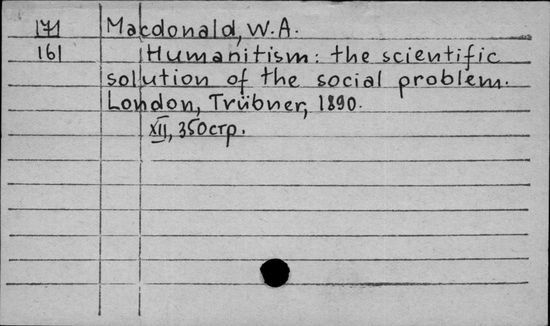 171 Macdonald, W.A.
161 Humanitism: the scientific
solution of the social problem.
London, Trübner, 1890.
XII, 350стр.